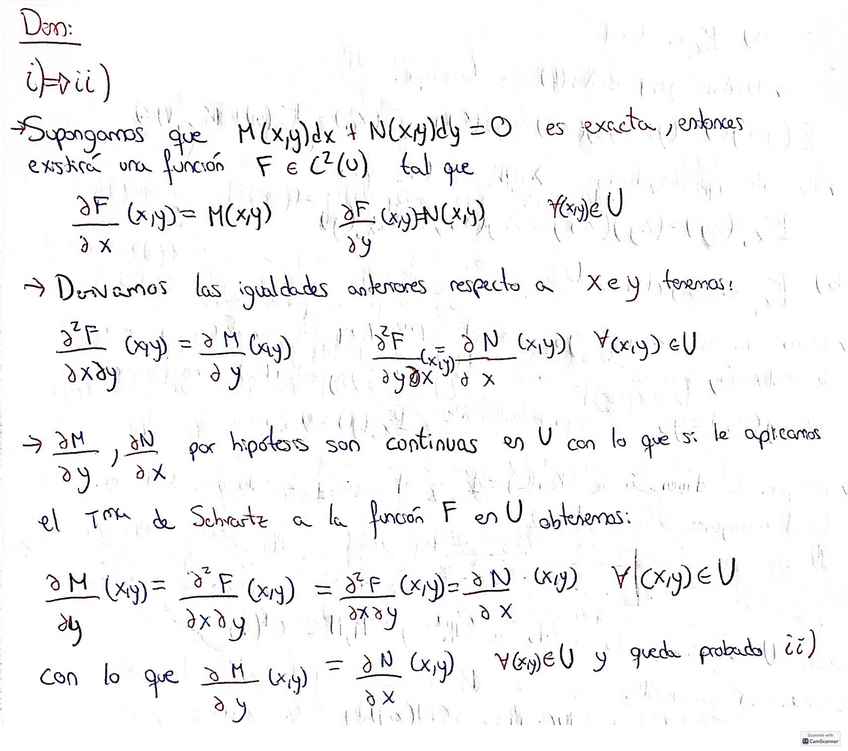 Dem:
i)⇒ii)
→Supongamos que M(x,y)dx + N(x,y)dy = 0 es exacta, entonces
existirá una función F ∈ C²(U) tal que
∂F/∂x (x,y) = M(x,y) ∂F/∂y (x,y)=N(x,y) ∀(x,y)∈U
→ Derivamos las igualdades anteriores respecto a x e y tenemos:
∂²F/∂x∂y (x,y) = ∂M/∂y (x,y) ∂²F/∂y∂x (x,y) = ∂N/∂x (x,y) ∀(x,y)∈U
→ ∂M/∂y, ∂N/∂x por hipótesis son continuas en U con lo que si le aplicamos
el Tma de Schvartz a la función F en U obtenemos:
∂M/∂y (x,y) = ∂²F/∂x∂y (x,y) = ∂²F/∂x∂y (x,y) = ∂N/∂x (x,y) ∀(x,y)∈U
con lo que ∂M/∂y (x,y) = ∂N/∂x (x,y) ∀(x,y)∈U y queda probado ii)
Scanned with
CamScanner